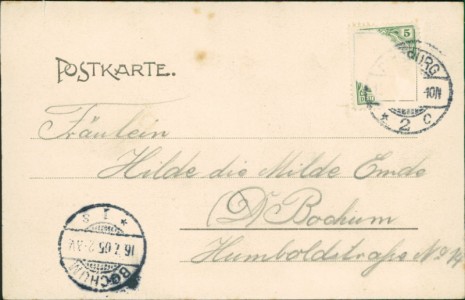 5
BURG
-10N
* 2 c
POSTKARTE.
Fräulein
Hilde die Milde Emde
(D) Bochum
Humboldstraße No 14
* 1 s
16.7.05.2-3V
BOCHUM